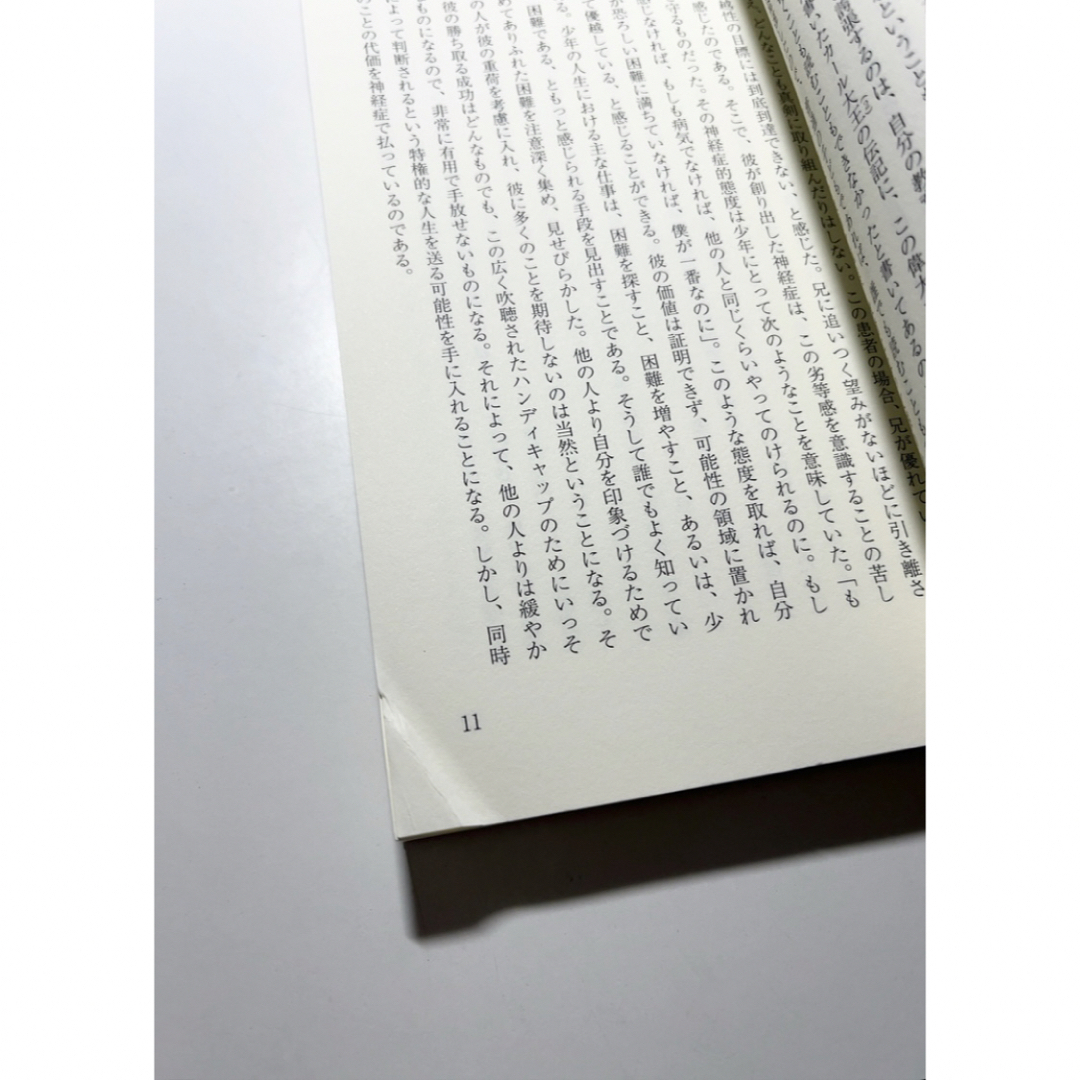 ということ
結果するのは、自分の教
書いたカール大王の伝記に、この偉大
むこともできなかったと書いてあるの
え、どんなことも真剣に取り組んだりはしない。この患者の場合、兄が優れてい
越性の目標には到底到達できない、と感じた。兄に追いつく望みがないほどに引き離さ
感じたのである。そこで、彼が創り出した神経症は、この劣等感を意識することの苦し
守るものだった。その神経症的態度は少年にとって次のようなことを意味していた。「も
感じなければ、もしも病気でなければ、他の人と同じくらいやってのけられるのに。もし
が恐ろしい困難に満ちていなければ、僕が一番なのに」。このような態度を取れば、自分
て優越している、と感じることができる。彼の価値は証明できず、可能性の領域に置かれ
る。少年の人生における主な仕事は、困難を探すこと、困難を増やすこと、あるいは、少
困難である、ともっと感じられる手段を見出すことである。そうして誰でもよく知ってい
めてありふれた困難を注意深く集め、見せびらかした。他の人より自分を印象づけるためで
の人が彼の重荷を考慮に入れ、彼に多くのことを期待しないのは当然ということになる。そ
彼の勝ち取る成功はどんなものでも、この広く吹聴されたハンディキャップのためにいっそ
ものになるので、非常に有用で手放せないものになる。それによって、他の人よりは緩やか
によって判断されるという特権的な人生を送る可能性を手に入れることになる。しかし、同時
のことの代価を神経症で払っているのである。
11